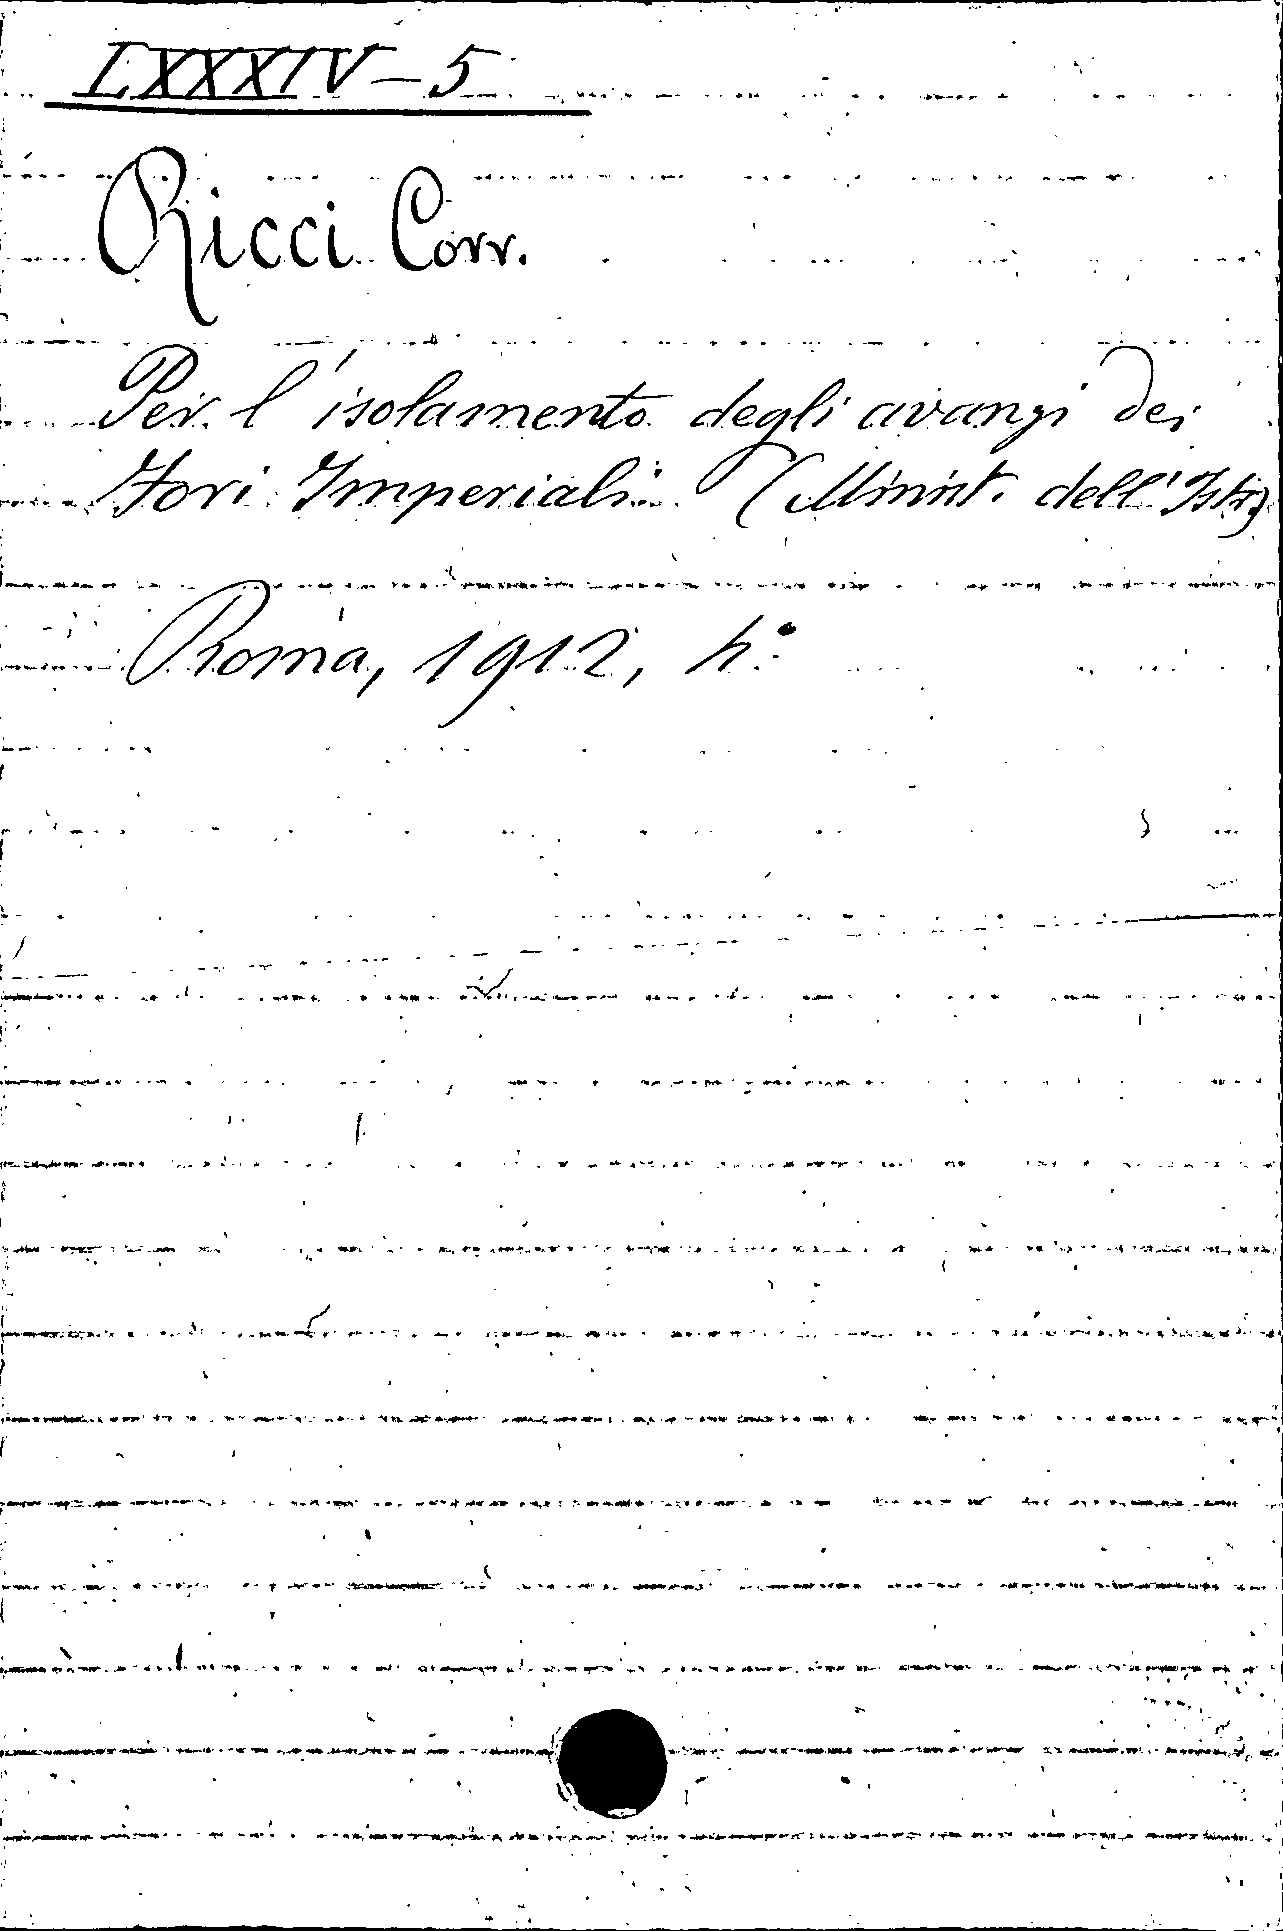 LXXXIV-5
Ricci Corr.
Per l'isolamento degli avanzi dei
Fori Imperiali. (Minist. dell'Istr)
Roma, 1912, 4°